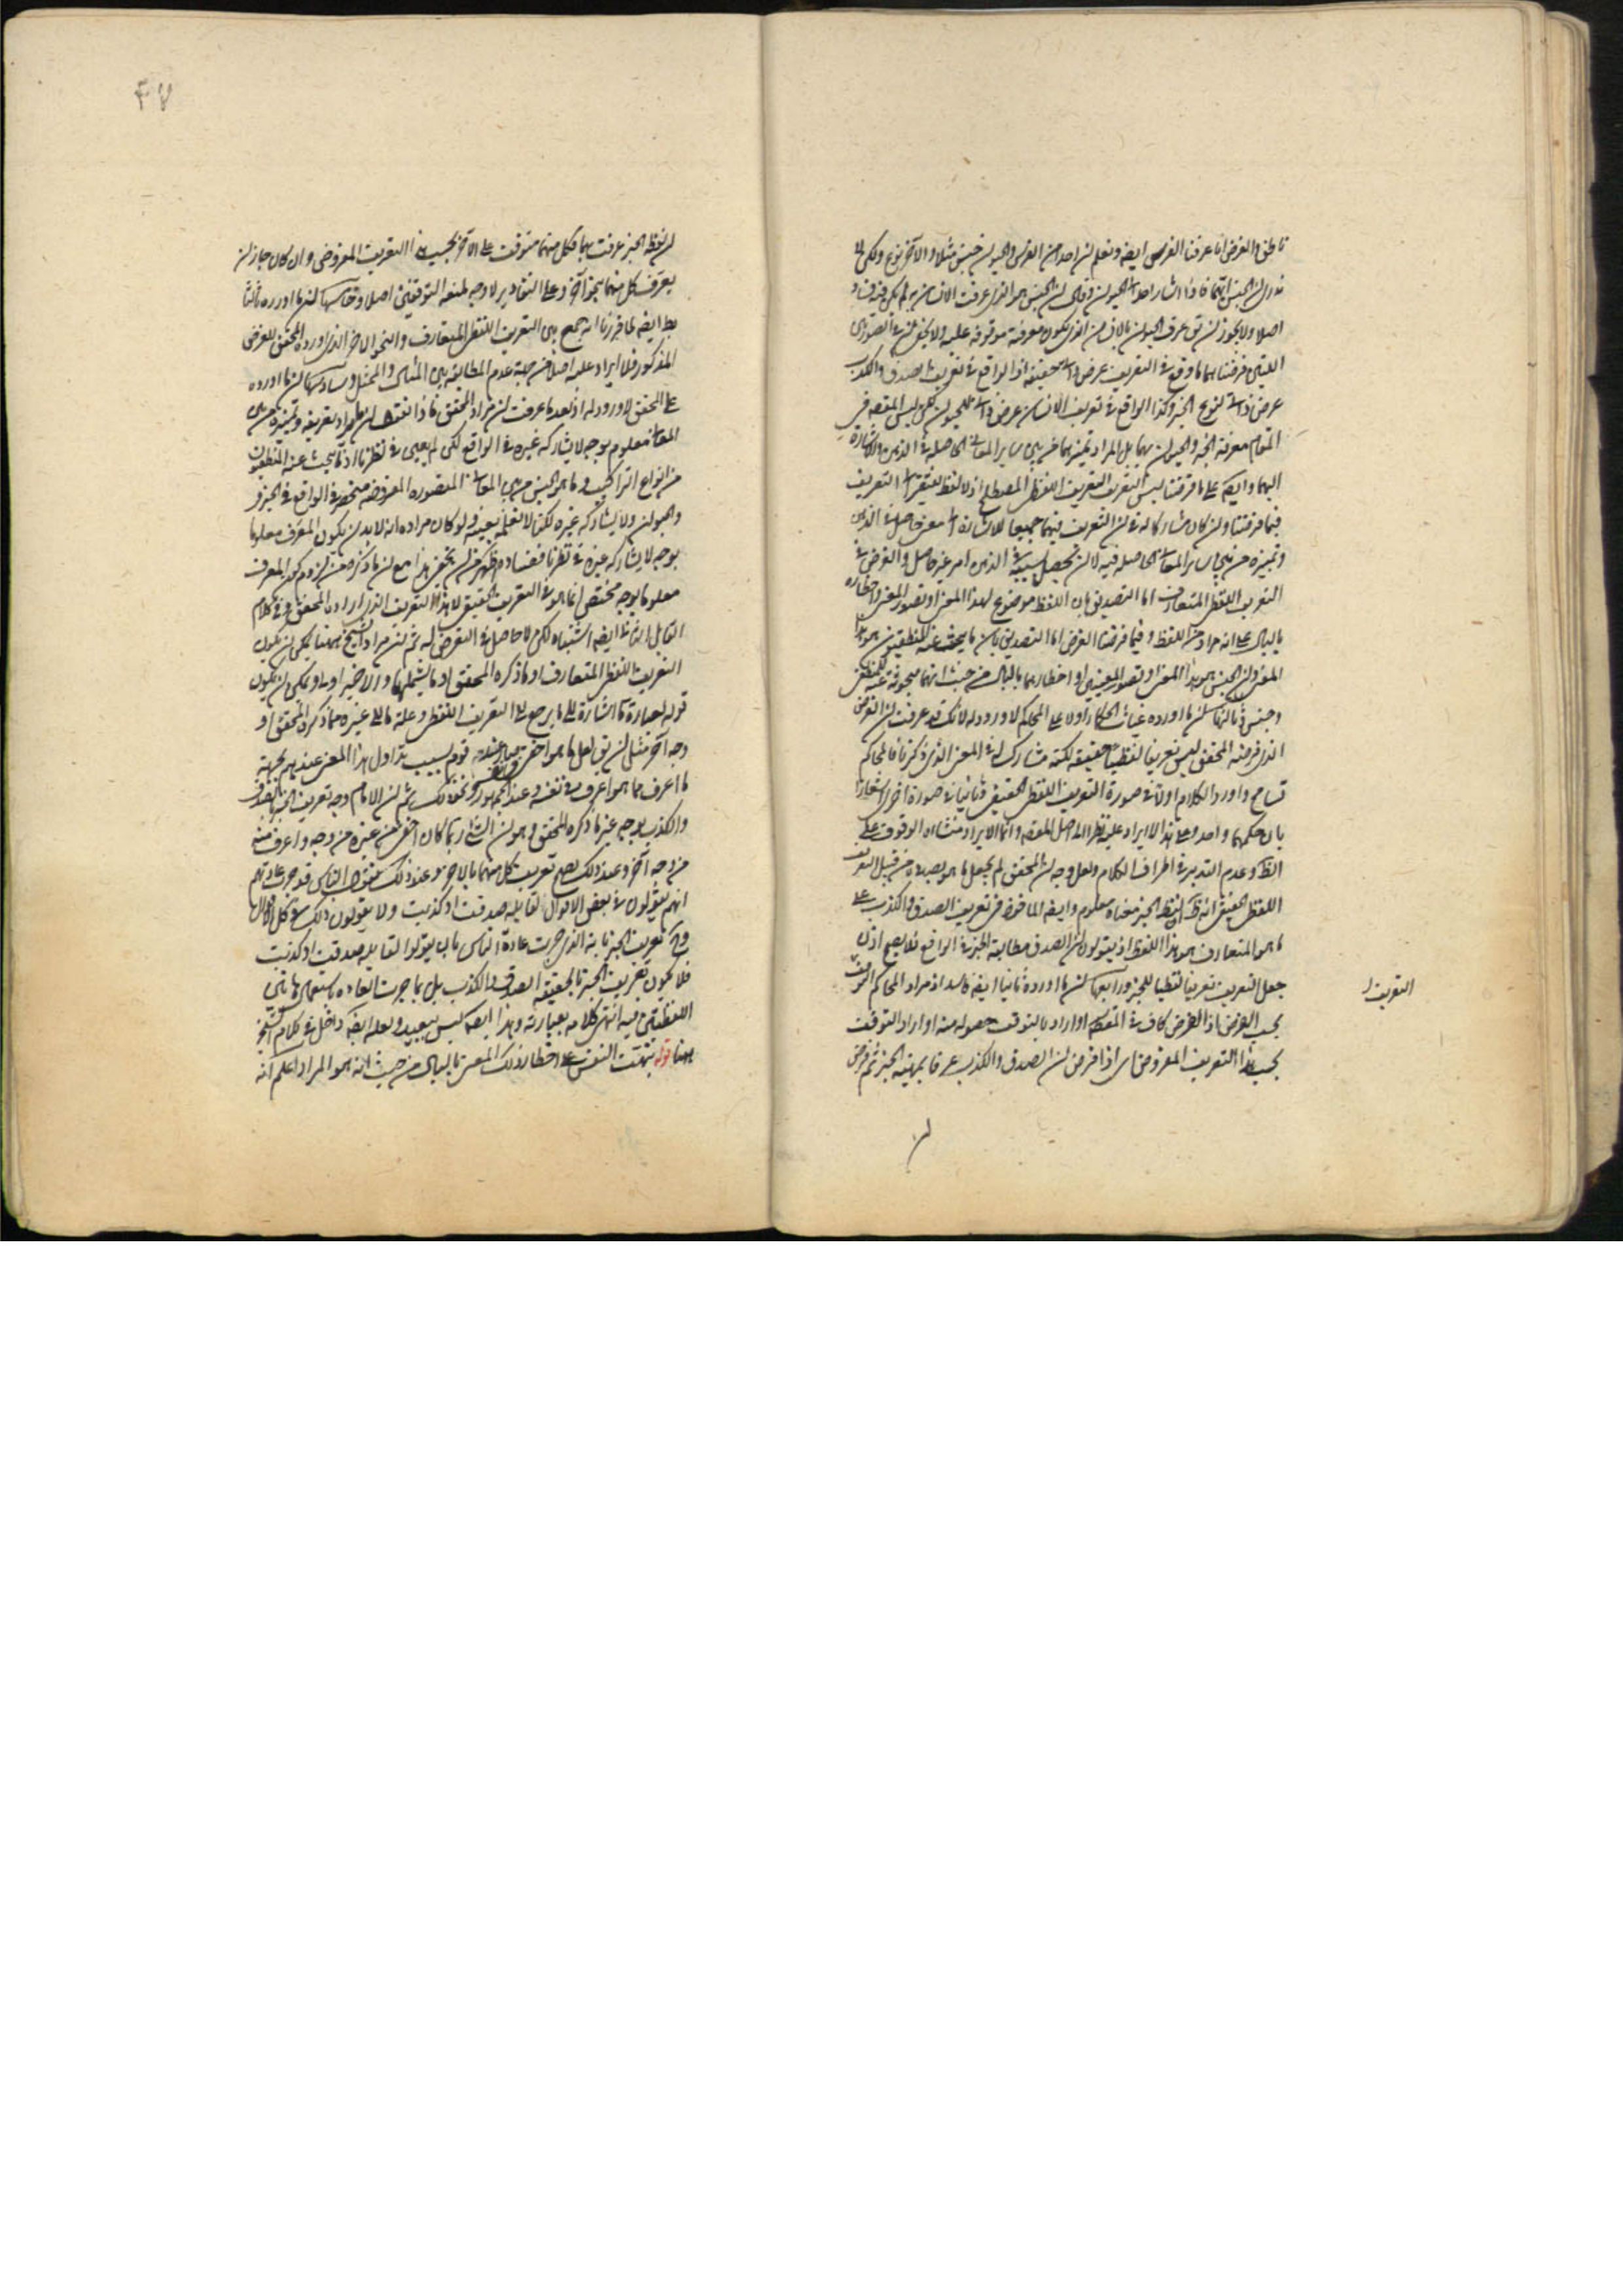 ناطق والغرض انا عرفنا الفرس ايضا ونعلم ان احد من الفرس والحيوان جنس مثلا والآخر نوع ولكن لا
ندرى ان الجنس ايهما فاذا اشار احد الى الحيوان وقال ان الجنس هو الذى عرفت الانسان به لم يكن فيه فساد
اصلا ولا يجوز ان يق عرف الحيوان بالانسان الذى يكون معرفته موقوفة عليه ولا يخفى ان فى الصورتين
اللتين فرضناهما ما وقع فى التعريف عرض ذاتى حقيقة اذ الواقع فى تعريف الصدق والكذب
عرض ذاتى لنوع الخبر وكذا الواقع فى تعريف الانسان عرض ذاتى للحيوان لكن ليس المقصود فى
المقام معرفة الخبر والحيوان بهما بل المراد تميزهما من بين ساير المعانى الحاصلة فى الذهن والاشارة
اليهما وايضا على ما فرضنا ليس التعريف التعريف اللفظى المصطلح اذ لا لفظ يفتقر الى التعريف
فيما فرضنا وان كان مشاركا له فى ان التعريف فيهما جميعا للاشارة الى معنى حاصل فى الذهن
وتميزه من بين ساير المعانى الحاصلة فيه لا لان تحصيل بسببه فى الذهن امر غير حاصل والغرض فى
التعريف اللفظى المتعارف اما التصديق بان اللفظ موضوع لهذا المعنى او تصور المعنى واخطاره
بالبال على انه مراد من اللفظ وفيما فرضنا الغرض اما التصديق بان ما يبحث عنه المنطقيون هو هذا
المعنى وان الجنس هو هذا المعنى او تصور المعنيين او اخطارهما بالبال من حيث انهما مبحوث عنه للمنطقى
وجنس وثالثها ان ما اورده غياث الحكماء اولا على المحاكم لا ورود له لانك قد عرفت ان الغرض
الذى فرضه المحقق ليس تعريفا لفظيا حقيقة لكنه مشارك له فى المعنى الذى ذكرنا فالمحاكم
تسامح واورد الكلام اولا فى صورة التعريف اللفظى الحقيقى وثانيا فى صورة اخرى اشعارا
بان حكمهما واحد وعلى هذا لا ايراد عليه نظرا الى اصل المقصود وانما الايراد منشاه الوقوف على
الظ وعدم التدبر فى اطراف الكلام ولعل وجه ان المحقق لم يجعل ما هو بصدده من قبيل التعريف
اللفظى الحقيقى انه ظ ان لفظ الخبر معناه معلوم وايضا الماخوذ فى تعريف الصدق والكذب على
ما هو المتعارف هو هذا اللفظ اذ يقولون ان الصدق مطابقة الخبر فى الواقع فلا يصح اذن
جعل التعريف تعريفا لفظيا للخبر ورابعها ان ما اورده ثانيا ايضا فاسد اذ مراد المحاكم التوقف
بحسب الفرض اذ الفرض كاف فى المقصود او اراد بالتوقف حصوله منه او اراد التوقف
بحسب هذا التعريف المفروض اى اذا فرض ان الصدق والكذب عرفا بمهية الخبر ثم فرض
ان
التعريف
٤٧
ان لفظ الخبر عرفت بهما فكل منهما متوقف على الآخر بحسب هذا التعريف المفروض وان كان جاز ان
يعرف كل منهما بنحو آخر وعلى التقادير لا وجه لمنعه التوقفين اصلا وخامسها ان ما اورده ثالثا
بط ايضا لما قررنا انه جمع بين التعريف اللفظى المتعارف والنحو الاخر الذى اورده المحقق للغرض
المذكور فلا ايراد عليه اصلا من جهة عدم المطابقة بين المثال والممثل وسادسها ان ما اورده
على المحقق لا ورود له اذ بعد ما عرفت ان مراد المحقق ماذا نقول ان المراد تعريفه وتميزه من بين
المعانى معلوم بوجه لا يشاركه غيره فى الواقع لكن لم يتعين فى نظرنا اذ ما يبحث عنه المنطقيون
من انواع التراكيب وما هو الجنس من بين المعانى المتصوره المفروضه منحصر فى الواقع فى الخبر
والحيوان ولا يشاركه غيره لكنا لا نعلمه بعينه ولو كان مراده انه لا بد ان يكون المعرف معلوما
بوجه لا يشاركه غيره فى نظرنا ففساده اظهر من ان يخفى هذا مع ان ما ذكره من لزوم كون المعرف
معلوما بوجه مختص انما هو فى التعريف الحقيقى لا هذا التعريف الذى اراده المحقق وفى كلام
القايل الثانى ايضا اشتباه لكن لا حاصل فى التعرض له ثم ان مراد الشيخ ههنا يمكن ان يكون
التعريف اللفظى المتعارف او ما ذكره المحقق او ما يشملهما والاخير اولى ويمكن ان يكون
قوله لعبارة ما اشارة الى ما يرجع الى التعريف اللفظى وعلة ما الى غيره مما ذكره المحقق او
وجه آخر مثل ان يق لعل ما هو اخفى صار عند قوم بسبب تداول هذا المعنى عندهم بجهة
ما اعرف مما هو اعرف فى نفسه وعند الجمهور ونحو ذلك ثم ان الامام وجه تعريف الخبر بالصدق
والكذب بوجه غير ما ذكره المحقق وهو ان الشئ ربما كان اخفى من غيره من وجه واعرف منه
من وجه آخر وعند ذلك يصح تعريف كل منهما بالاخر وعند ذلك نقول الناس قد جرت عادتهم
انهم يقولون فى بعض الاقوال لقايله صدقت او كذبت ولا يقولون ذلك فى كل الاقوال
وح تعريف الخبر بانه الذى جرت عادة الناس بان يقولوا لقايله صدقت او كذبت
فلا يكون تعريف الخبر بالحقيقة الصدق والكذب بل بما جرت العادة باستعمال هاتين
اللفظتين فيه انتهى كلامه بعبارته وهذا ايضا ليس ببعيد ولعله ايضا داخل فى كلام الشيخ
ههنا قوله تنبهت النفس على اخطار ذلك المعنى بالبال من حيث انه هو المراد اعلم انه